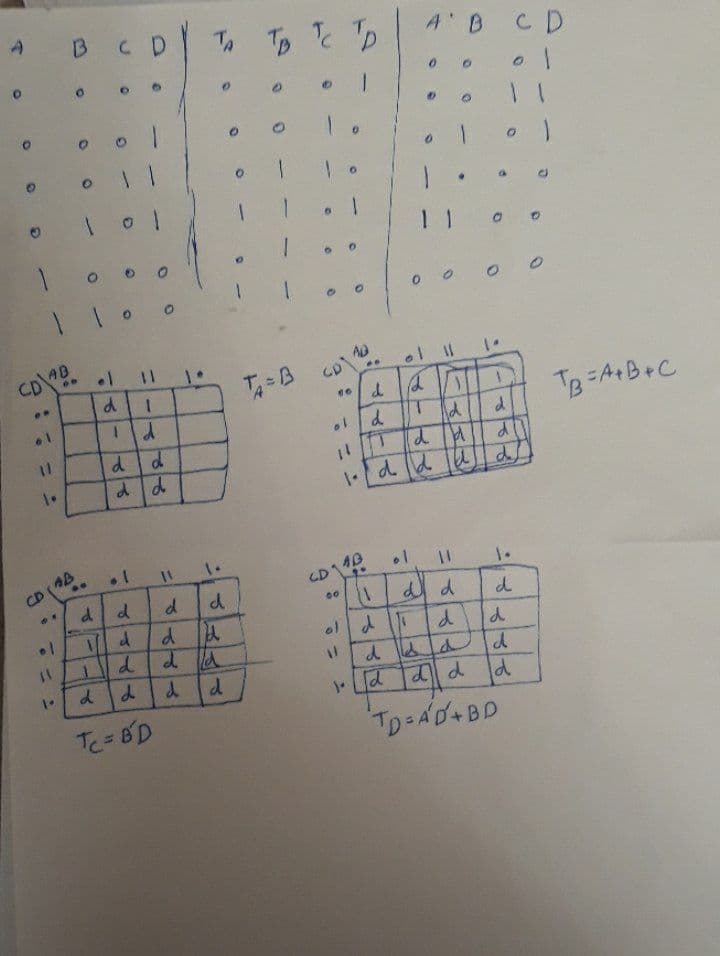 A B C D T_A T_B T_C T_D A⁺ B C D
0 0 0 0 0 0 0 1 0 0 0 1
0 0 0 1 0 0 1 0 0 0 1 1
0 0 1 1 0 1 1 0 0 1 0 1
0 1 0 1 1 1 0 1 1 0 0 0
1 0 0 0 0 1 0 0 1 1 0 0
1 1 0 0 1 1 0 0 0 0 0 0
CD\AB 00 01 11 10
00 d 1
01 1 d
11 d d
10 d d
T_A = B
CD\AB 00 01 11 10
00 d d 1 1
01 d 1 d d
11 1 d d d
10 d d d d
T_B = A+B+C
CD\AB 00 01 11 10
00 d d d d
01 1 d d d
11 1 d d d
10 d d d d
T_C = B'D
CD\AB 00 01 11 10
00 1 d d d
01 d 1 d d
11 d d d d
10 d d d d
T_D = A'D' + BD